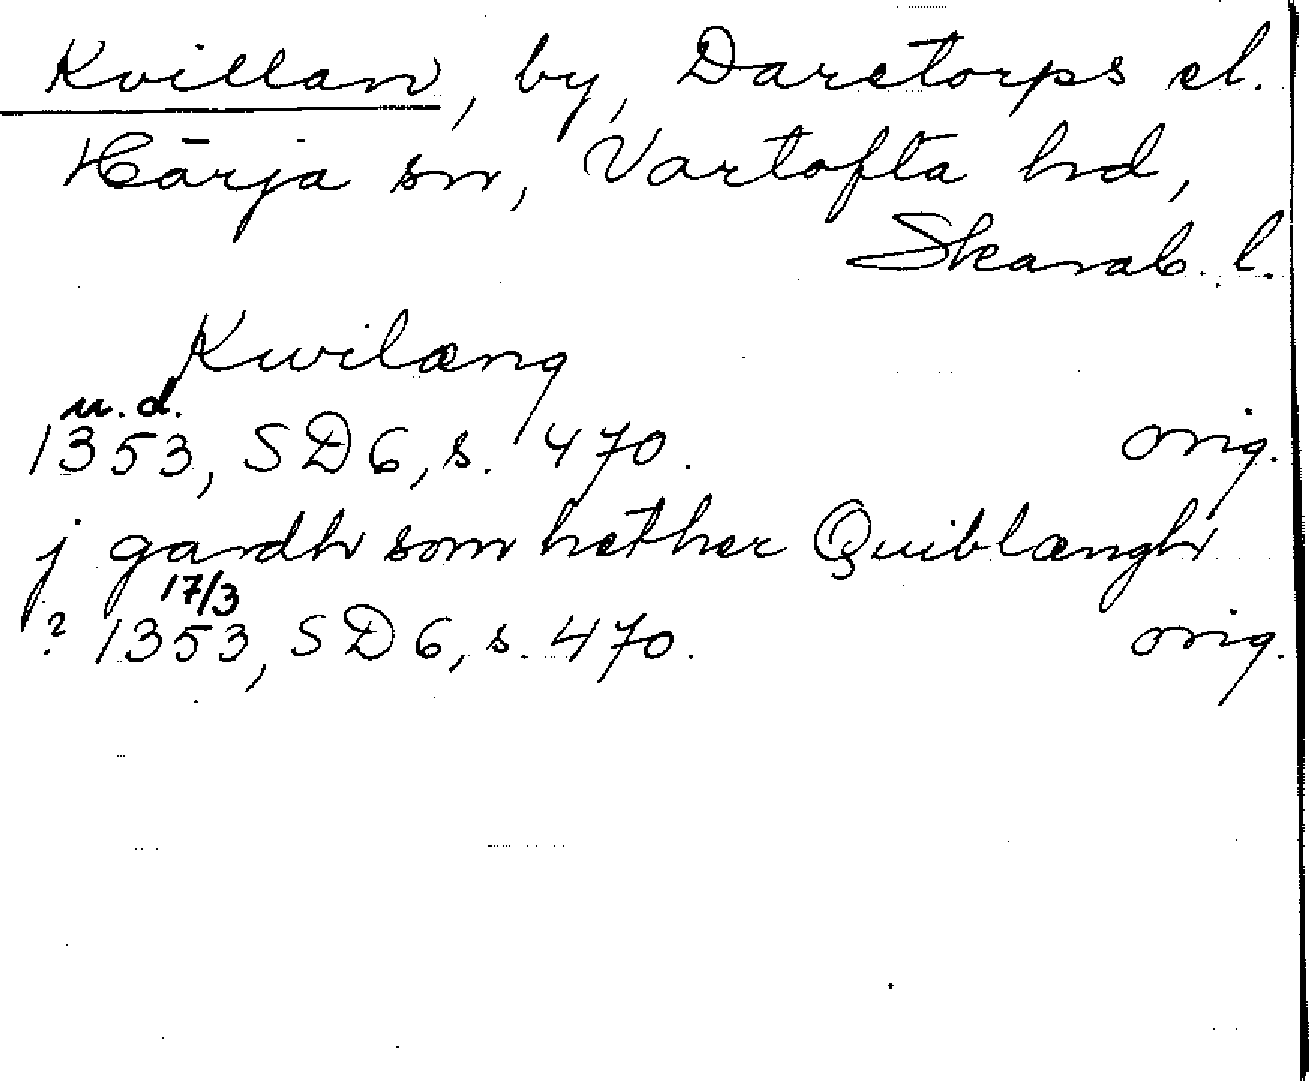 Kvillan, by, Daretorps el.
Härja sn, Vartofta hd,
Skarab. l.
Kwilæng
u. d.
1353, SD 6, s. 470. orig.
j gardh som hether Quiblængh
17/3
? 1353, SD 6, s. 470. orig.